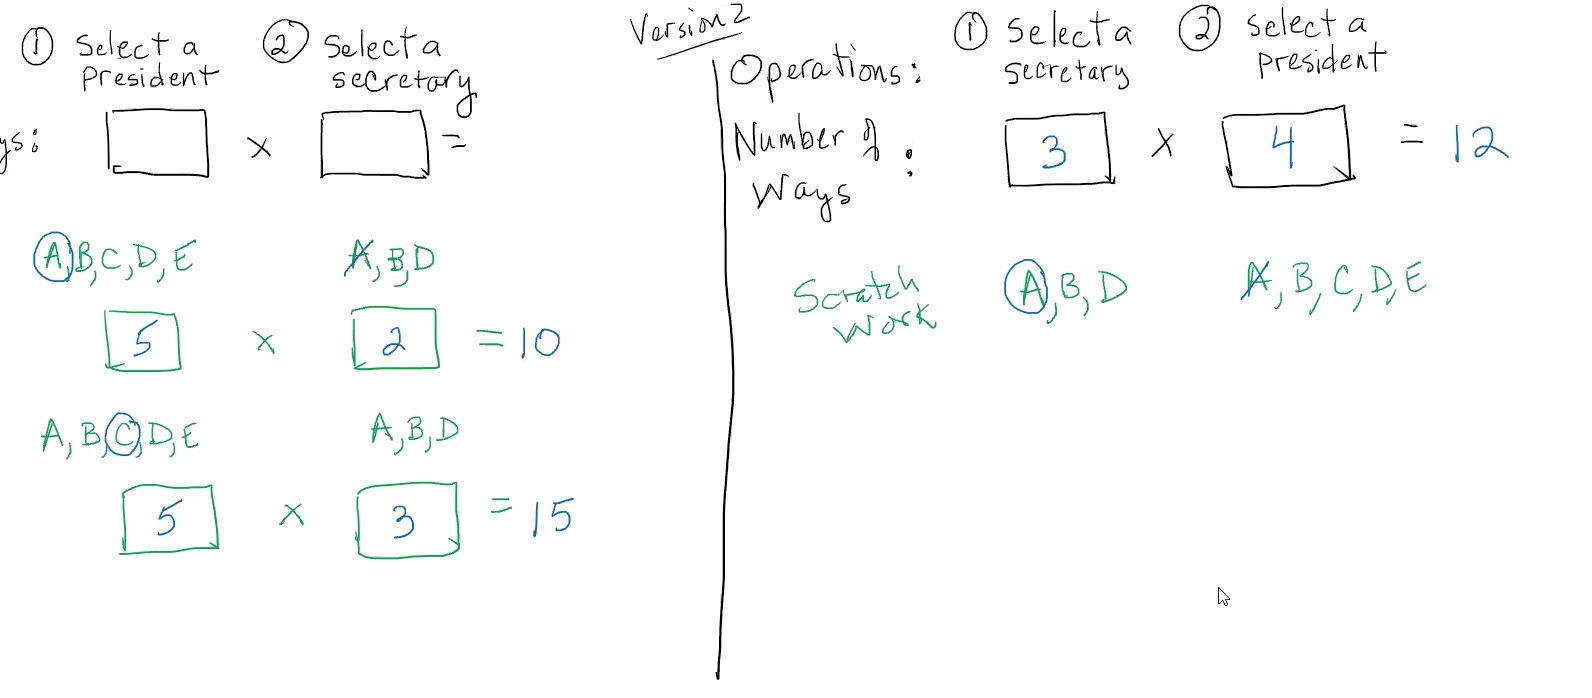 ① Select a President ② Select a secretary
ys: ☐ x ☐ =
A, B, C, D, E A, B, D
5 x 2 = 10
A, B, C, D, E A, B, D
5 x 3 = 15
Version 2
Operations: ① Select a secretary ② Select a president
Number of Ways : 3 x 4 = 12
Scratch Work A, B, D A, B, C, D, E